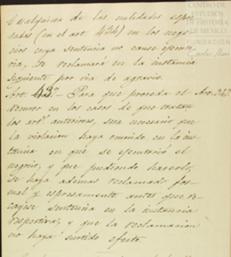 Cualquiera de las nulidades
cadas (en el art. 424) en los nego
cios cuya sentencia no cause
ria, se reclamará en la instancia
siguiente por via de agravio.
Art. - Para que proceda el
en los casos de que tratan
los art. anteriores, será necesario que
la violacion haya ocurrido en la ins
tancia en que se ejecutorió el
negocio, y que pudiendo hacerlo,
se haya ademas reclamado for
mal y espresamente antes que re
cayese sentencia en la instancia
respectiva, y que la reclamacion
no haya surtido efecto.
CENTRO DE
ESTUDIOS
DE HISTORIA
DE MEXICO